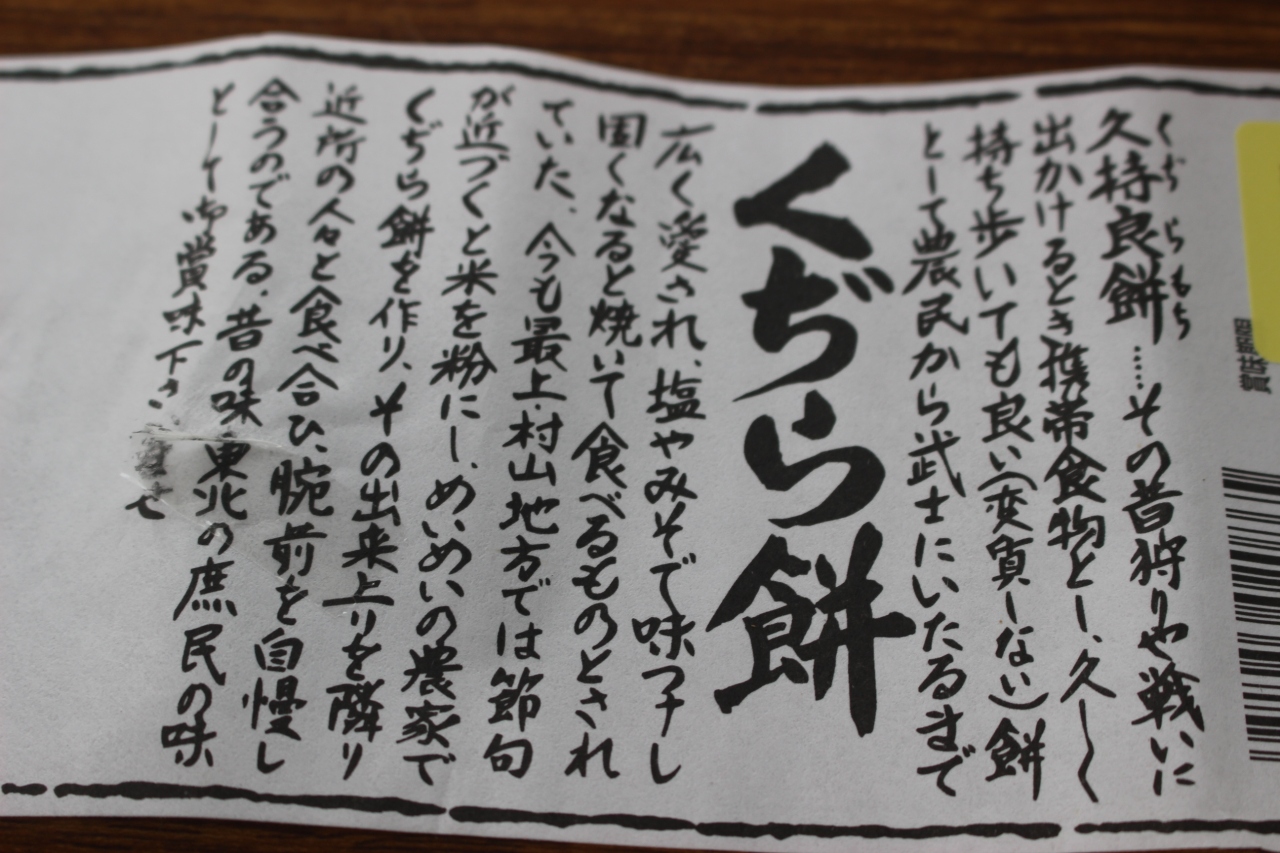 くぢらもち
久持良餅……その昔狩りや戦いに
出かけるとき携帯食物とし、久しく
持ち歩いても良い(変質しない)餅
として農民から武士にいたるまで
くぢら餅
広く愛され、塩やみそで味つけし
固くなると焼いて食べるものとされ
ていた、今も最上、村山地方では節句
が近づくと米を粉にし、めいめいの農家で
くぢら餅を作り、その出来上りを隣り
近所の人々と食べ合ひ、腕前を自慢し
合うのである、昔の味東北の庶民の味
として御賞味下さい
賞味期限